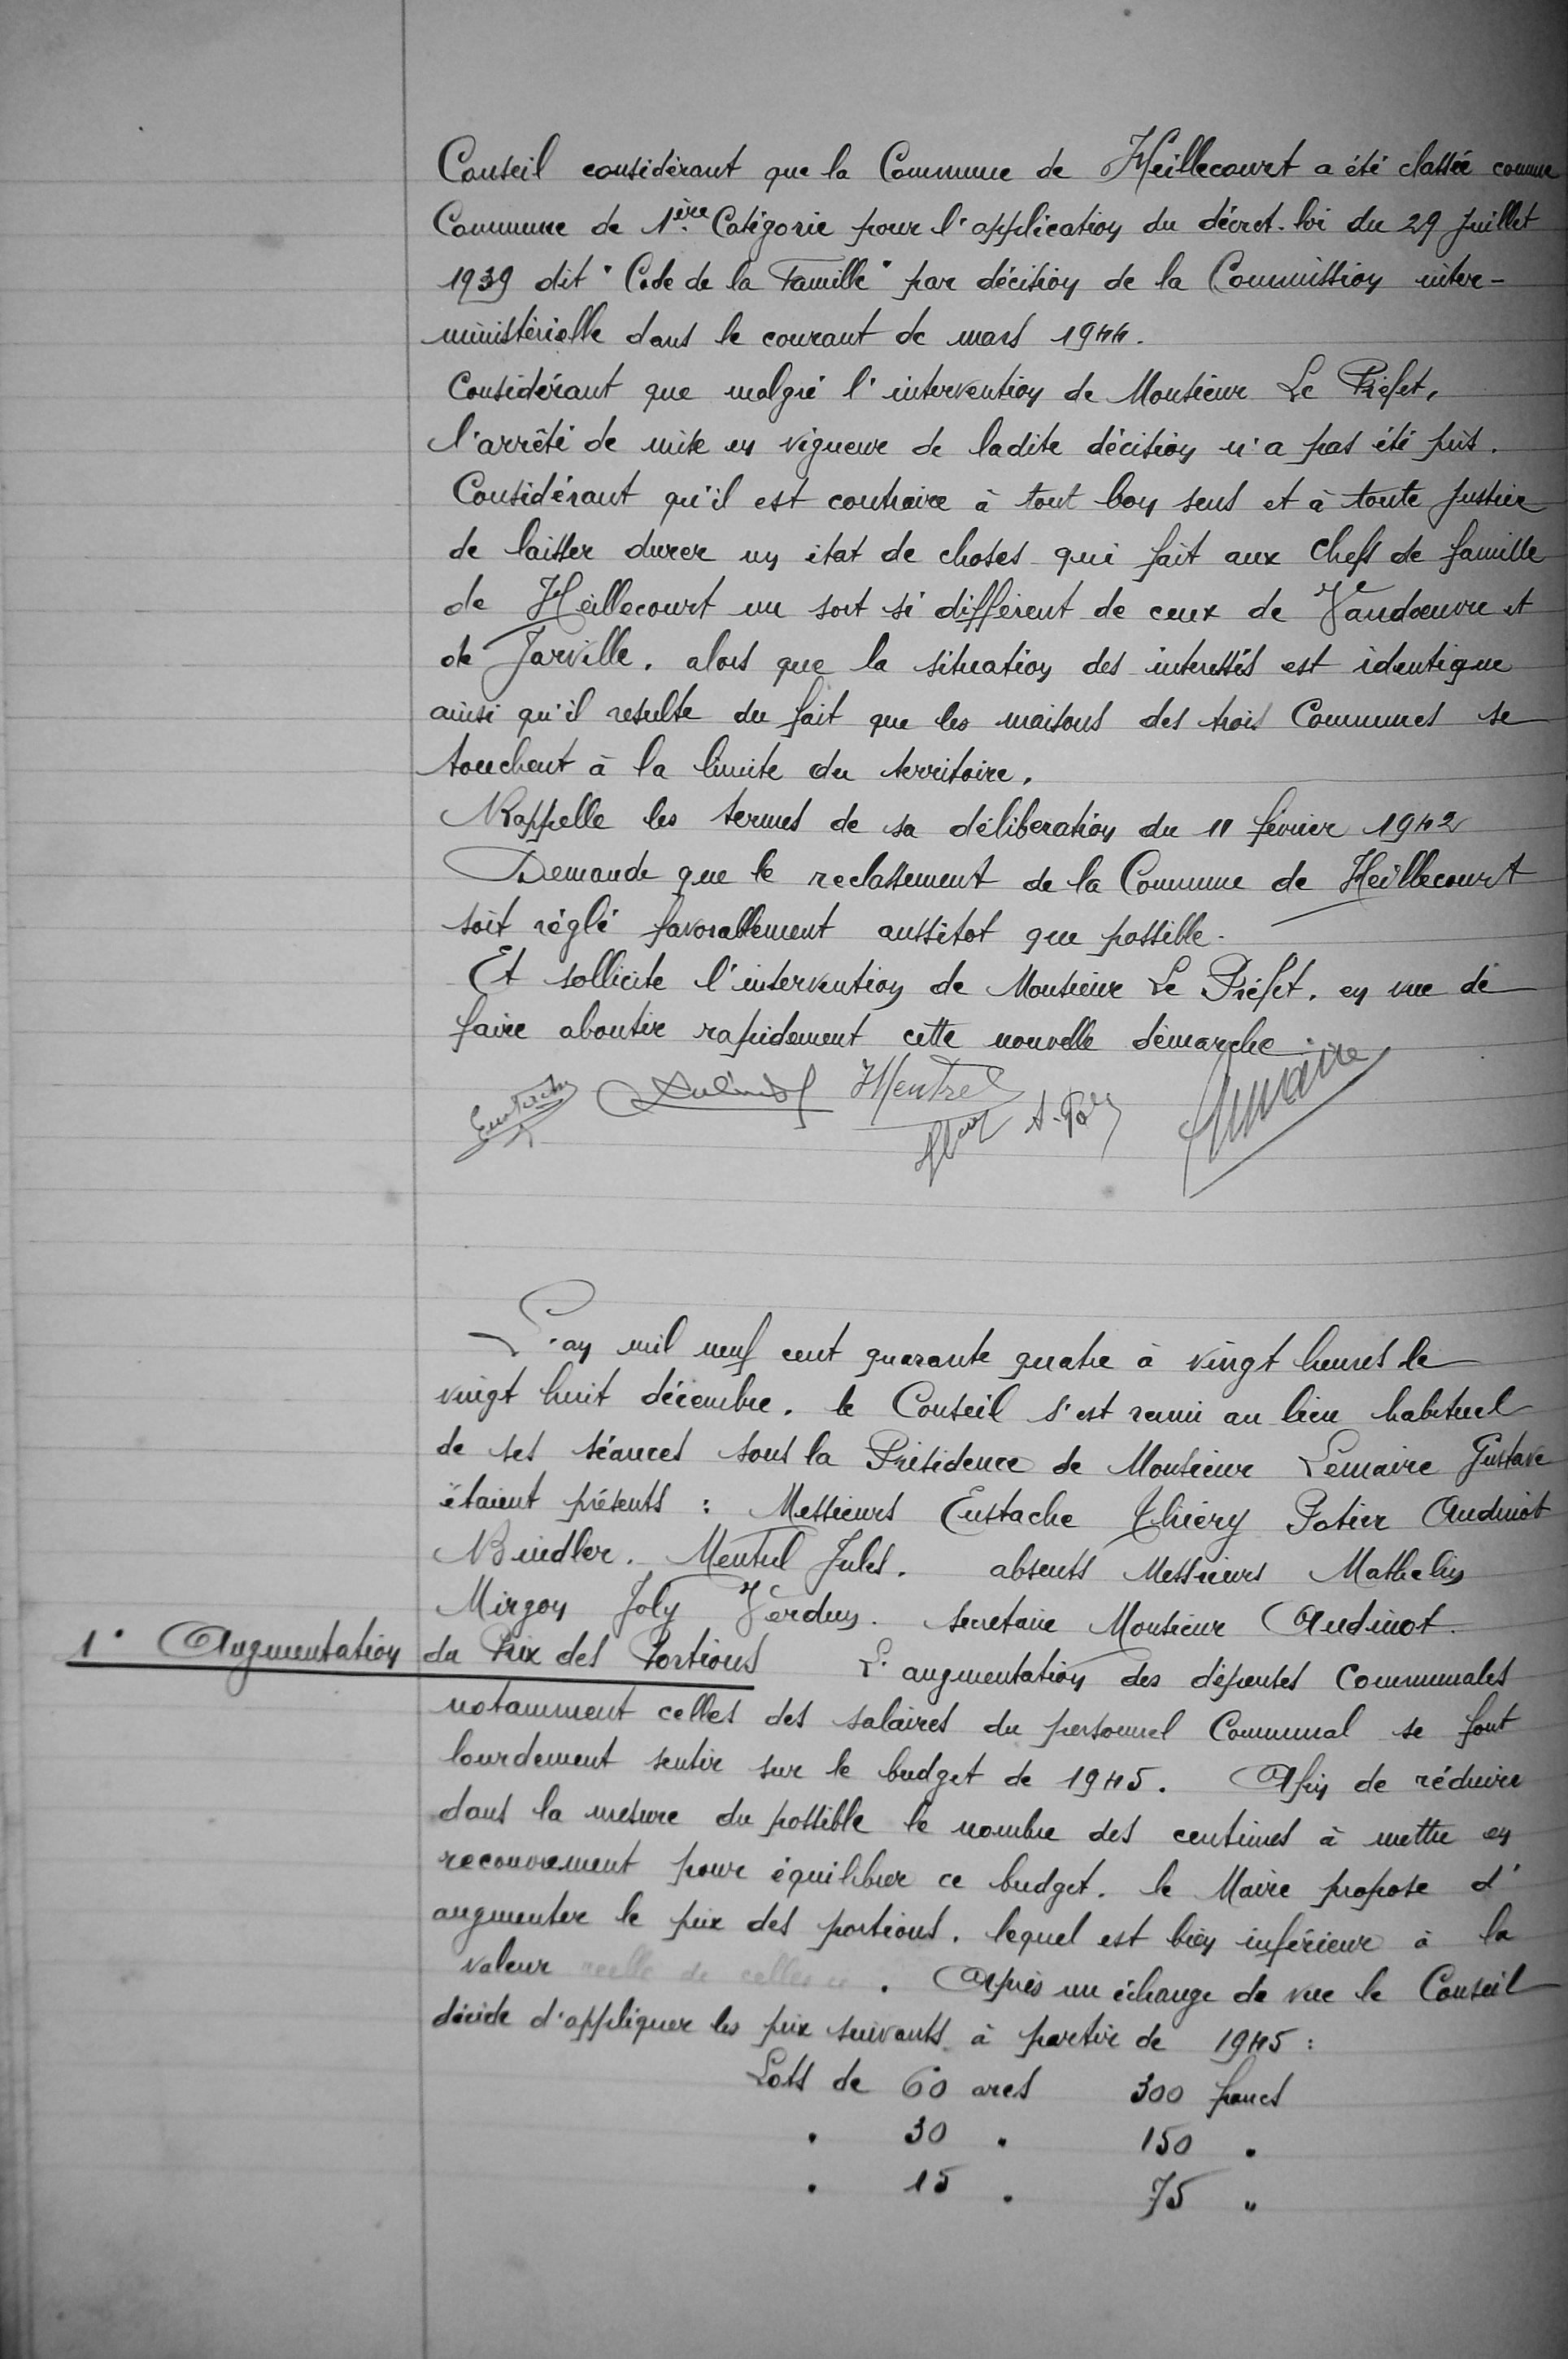 Conseil considérant que la Commune de Heillecourt a été classée comme
Commune de 1ère Catégorie pour l'application du décret-loi du 29 juillet
1939 dit "Code de la Famille" par décision de la Commission inter-
ministérielle dans le courant de mars 1944.
Considérant que malgré l'intervention de Monsieur Le Préfet,
l'arrêté de mise en vigueur de ladite décision n'a pas été pris.
Considérant qu'il est contraire à tout bon sens et à toute justice
de laisser durer un état de choses qui fait aux Chefs de famille
de Heillecourt un sort si différent de ceux de Vandœuvre et
de Jarville. alors que la situation des interessés est identique
ainsi qu'il resulte du fait que les maisons des trois Communes se
touchent à la limite du territoire.
Rappelle les termes de sa déliberation du 11 février 1942
Demande que le reclassement de la Commune de Heillecourt
soit réglé favorablement aussitot que possible.
Et sollicite l'intervention de Monsieur Le Préfet. en vue de
faire aboutir rapidement cette nouvelle démarche.
Eustache Audinot Mentrel
Lemaire
L'an mil neuf cent quarante quatre à vingt heures le
vingt huit décembre. le Conseil s'est reuni au lieu habituel
de ses séances sous la Présidence de Monsieur Lemaire Gustave
étaient présents : Messieurs Eustache Thiéry Potier Audinot
Bindler. Mentrel Jules. absents Messieurs Mathelin
Mirgon Joly Verdun. Secretaire Monsieur Audinot.
1° Augmentation du Prix des Portions L'augmentation des dépenses Communales
notamment celles des salaires du personnel Communal se font
lourdement sentir sur le budget de 1945. Afin de réduire
dans la mesure du possible le nombre des centimes à mettre en
recouvrement pour équilibrer ce budget. le Maire propose d'
augmenter le prix des portions. lequel est bien inférieur à la
valeur reelle de celles ci. Après un échange de vue le Conseil
décide d'appliquer les prix suivants à partir de 1945 :
Lots de 60 ares 300 francs
" 30 " 150 "
" 15 " 75 "